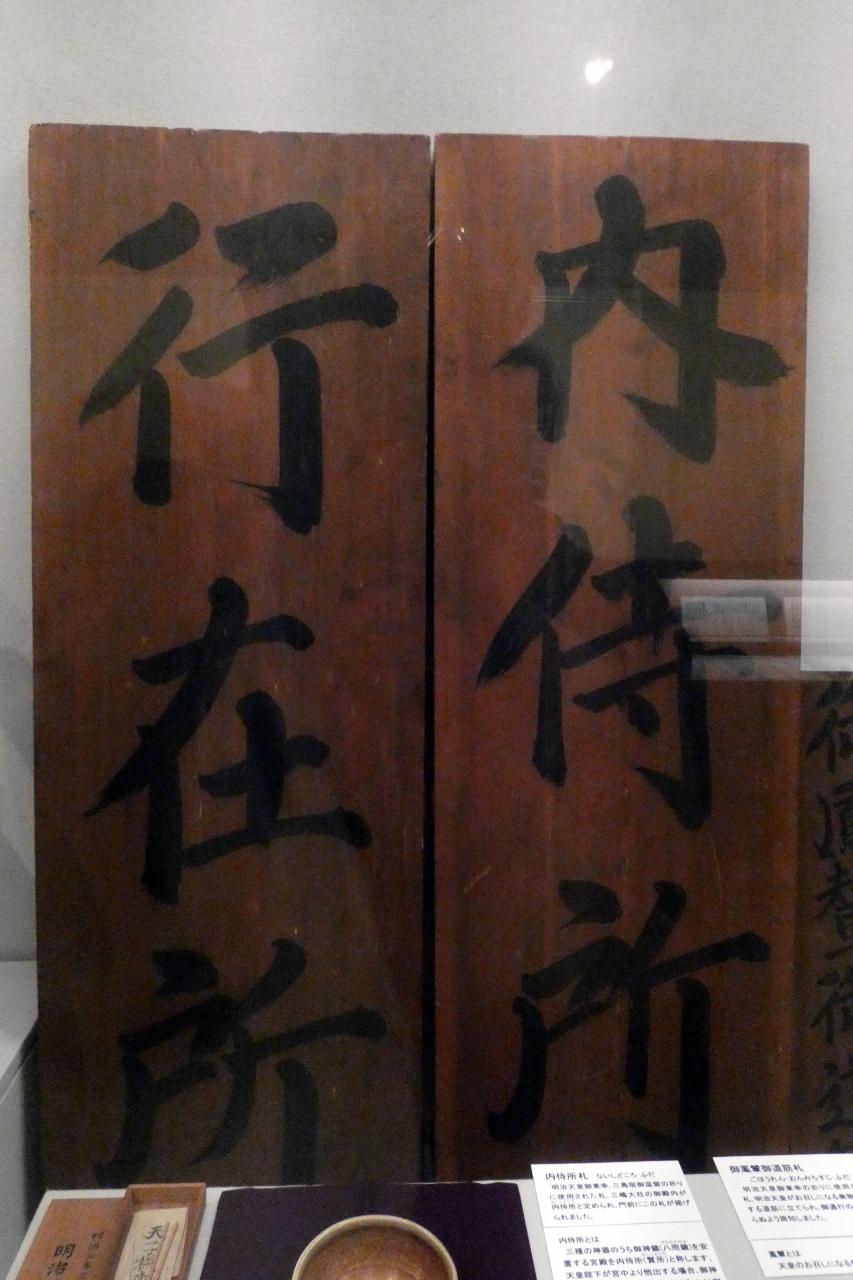 内侍所
行在所
内侍所札 ないしどころ・ふだ
明治天皇御東幸、三島宿御宿留の折り
に使用された札。三嶋大社の御殿内が
内侍所と定められ、門前にこの札が掲げ
られました。
内侍所とは
三種の神器のうち御神鏡(八咫鏡)を安
置する宮殿を内侍所(賢所)と称します。
天皇陛下が宮中より他出する場合、御神
御鳳輦御道筋札
ごほうれん・おんみちすじ・ふだ
明治天皇御東幸の折りに使用
札。明治天皇がお召しになる
する道筋に立てられ、御通行の
らぬよう周知しました。
鳳輦とは
天皇のお召しになる
明治